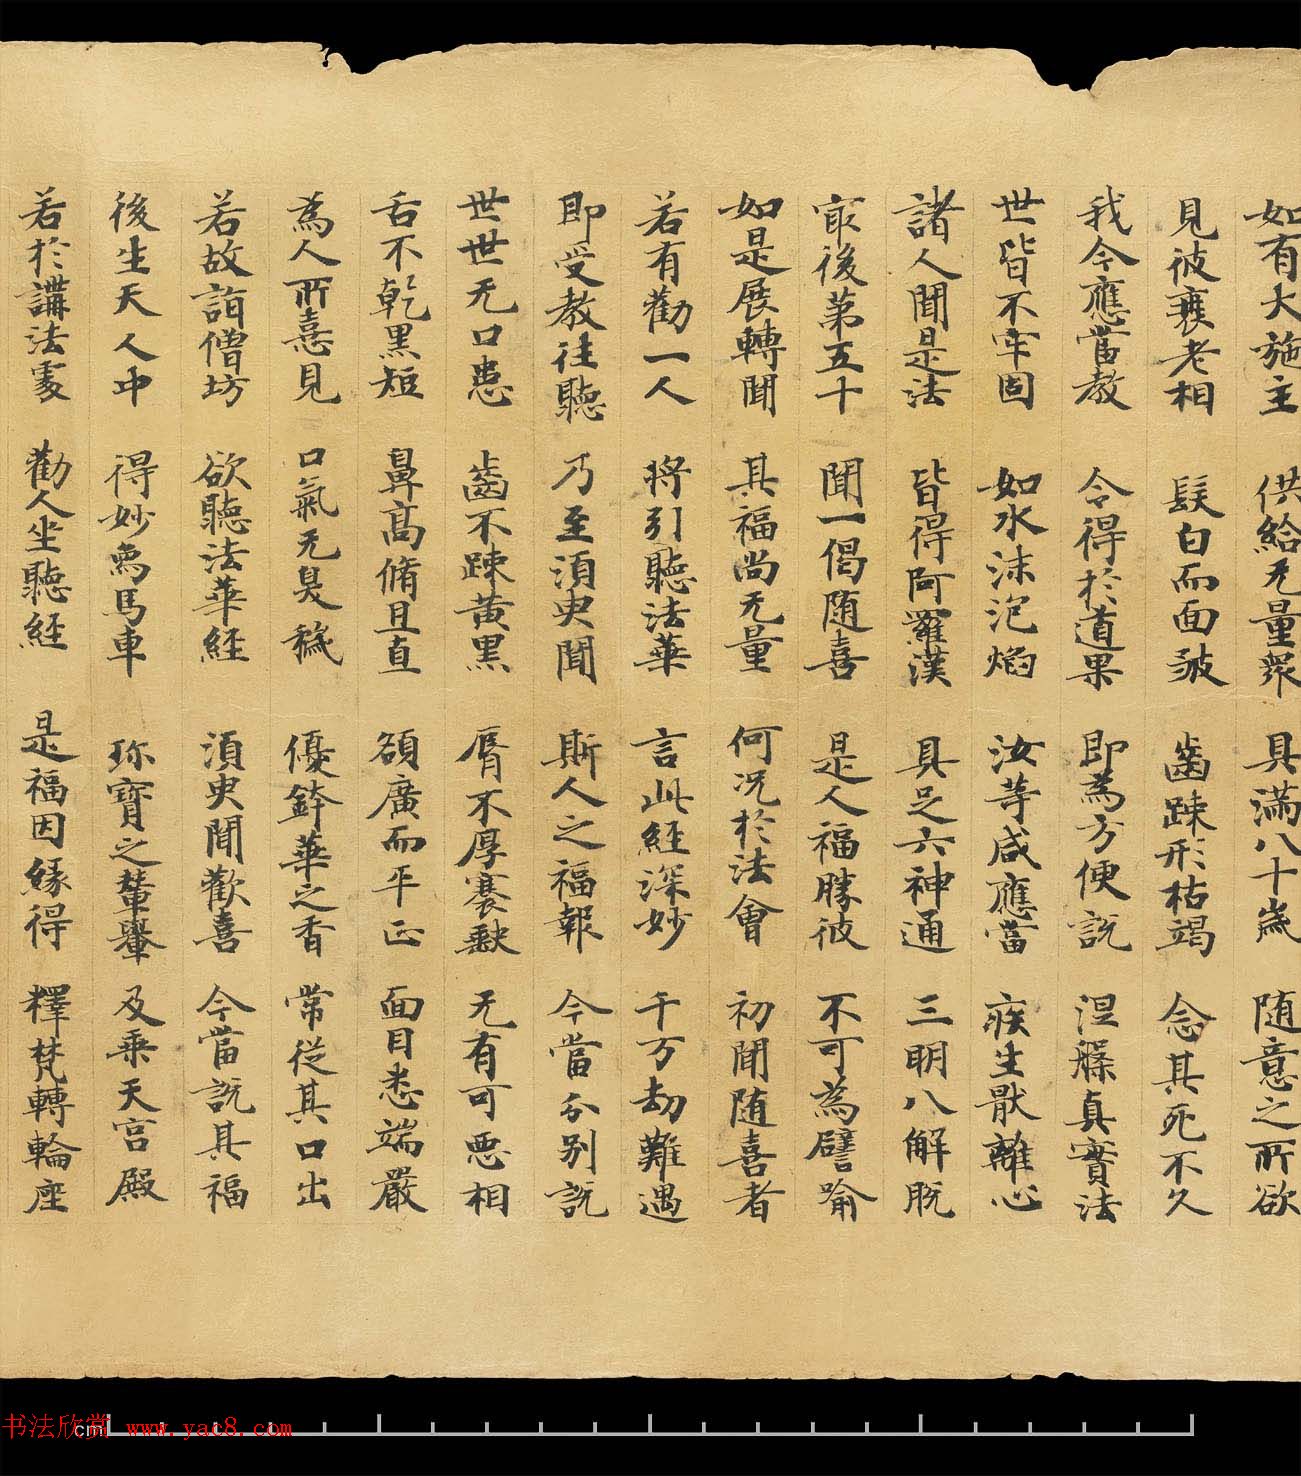 如有大施主 供給无量衆 具滿八十歲 随意之所欲
見彼衰老相 髮白而面皺 齒踈形枯竭 念其死不久
我今應當教 令得於道果 即為方便說 涅槃真實法
世皆不牢固 如水沫泡焰 汝等咸應當 疾生猒離心
諸人聞是法 皆得阿羅漢 具足六神通 三明八解脫
㝡後第五十 聞一偈随喜 是人福勝彼 不可為譬喻
如是展轉聞 其福尚无量 何况於法會 初聞随喜者
若有勸一人 將引聽法華 言此經深妙 千万劫難遇
即受教往聽 乃至湏臾聞 斯人之福報 今當分別說
世世无口患 齒不踈黃黑 脣不厚褰缺 无有可惡相
舌不乾黑短 鼻高脩且直 額廣而平正 面目悉端嚴
為人所憙見 口氣无臭穢 優鉢華之香 常從其口出
若故詣僧坊 欲聽法華經 湏臾聞歡喜 今當說其福
後生天人中 得妙象馬車 珎寶之輦轝 及乗天宮殿
若於講法處 勸人坐聽經 是福因緣得 釋梵轉輪座
书法欣赏 www.yac8.com
cm